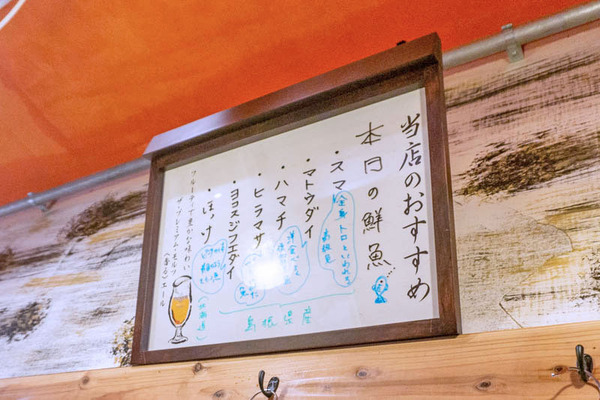 当店のおすすめ
本日の鮮魚
・スマ
全身トロといわれる
高級魚
・マトウダイ
・ハマチ
・ヒラマサ
・ヨコスジフエダイ
島根県産
・ほっけ
(北海道)
フルーティで豊かな味わい
ザ・プレミアム・モルツ
〈香る〉エール